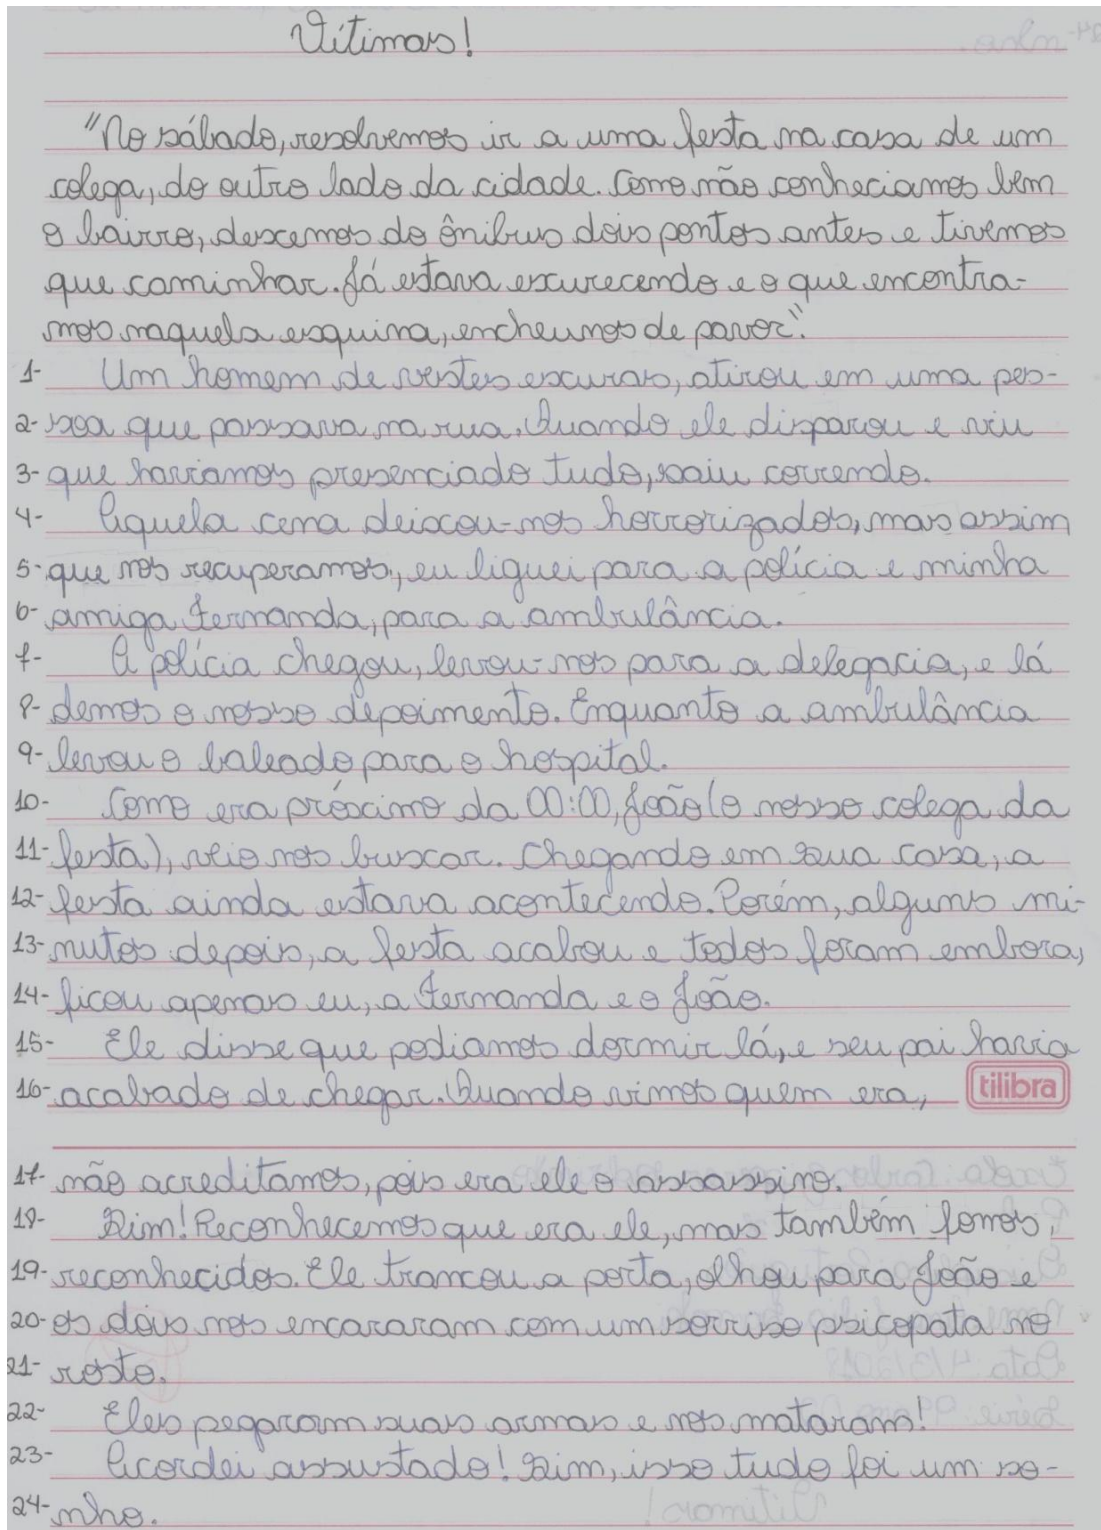 Vítimas!
"No sábado, resolvemos ir a uma festa na casa de um
colega, do outro lado da cidade. Como não conheciamos bem
o bairro, descemos do ônibus dois pontos antes e tivemos
que caminhar. Já estava escurecendo e o que encontra-
mos naquela esquina, encheu-nos de pavor".
1- Um homem de vestes escuras, atirou em uma pes-
2- soa que passava na rua. Quando ele disparou e viu
3- que haviamos presenciado tudo, saiu correndo.
4- Aquela cena deixou-nos horrorizados, mas assim
5- que nos recuperamos, eu liguei para a polícia e minha
6- amiga Fernanda, para a ambulância.
7- A polícia chegou, levou-nos para a delegacia, e lá
8- demos o nosso depoimento. Enquanto a ambulância
9- levou o baleado para o hospital.
10- Como era próximo da 00:00, João (o nosso colega da
11- festa), veio nos buscar. Chegando em sua casa, a
12- festa ainda estava acontecendo. Porém, alguns mi-
13- nutos depois, a festa acabou e todos foram embora,
14- ficou apenas eu, a Fernanda e o João.
15- Ele disse que podiamos dormir lá, e seu pai havia
16- acabado de chegar. Quando vimos quem era, tilibra
17- não acreditamos, pois era ele o assassino.
18- Sim! Reconhecemos que era ele, mas também fomos
19- reconhecidos. Ele trancou a porta, olhou para João e
20- os dois nos encararam com um sorriso psicopata no
21- rosto.
22- Eles pegaram suas armas e nos mataram!
23- Acordei assustado! Sim, isso tudo foi um so-
24- nho.